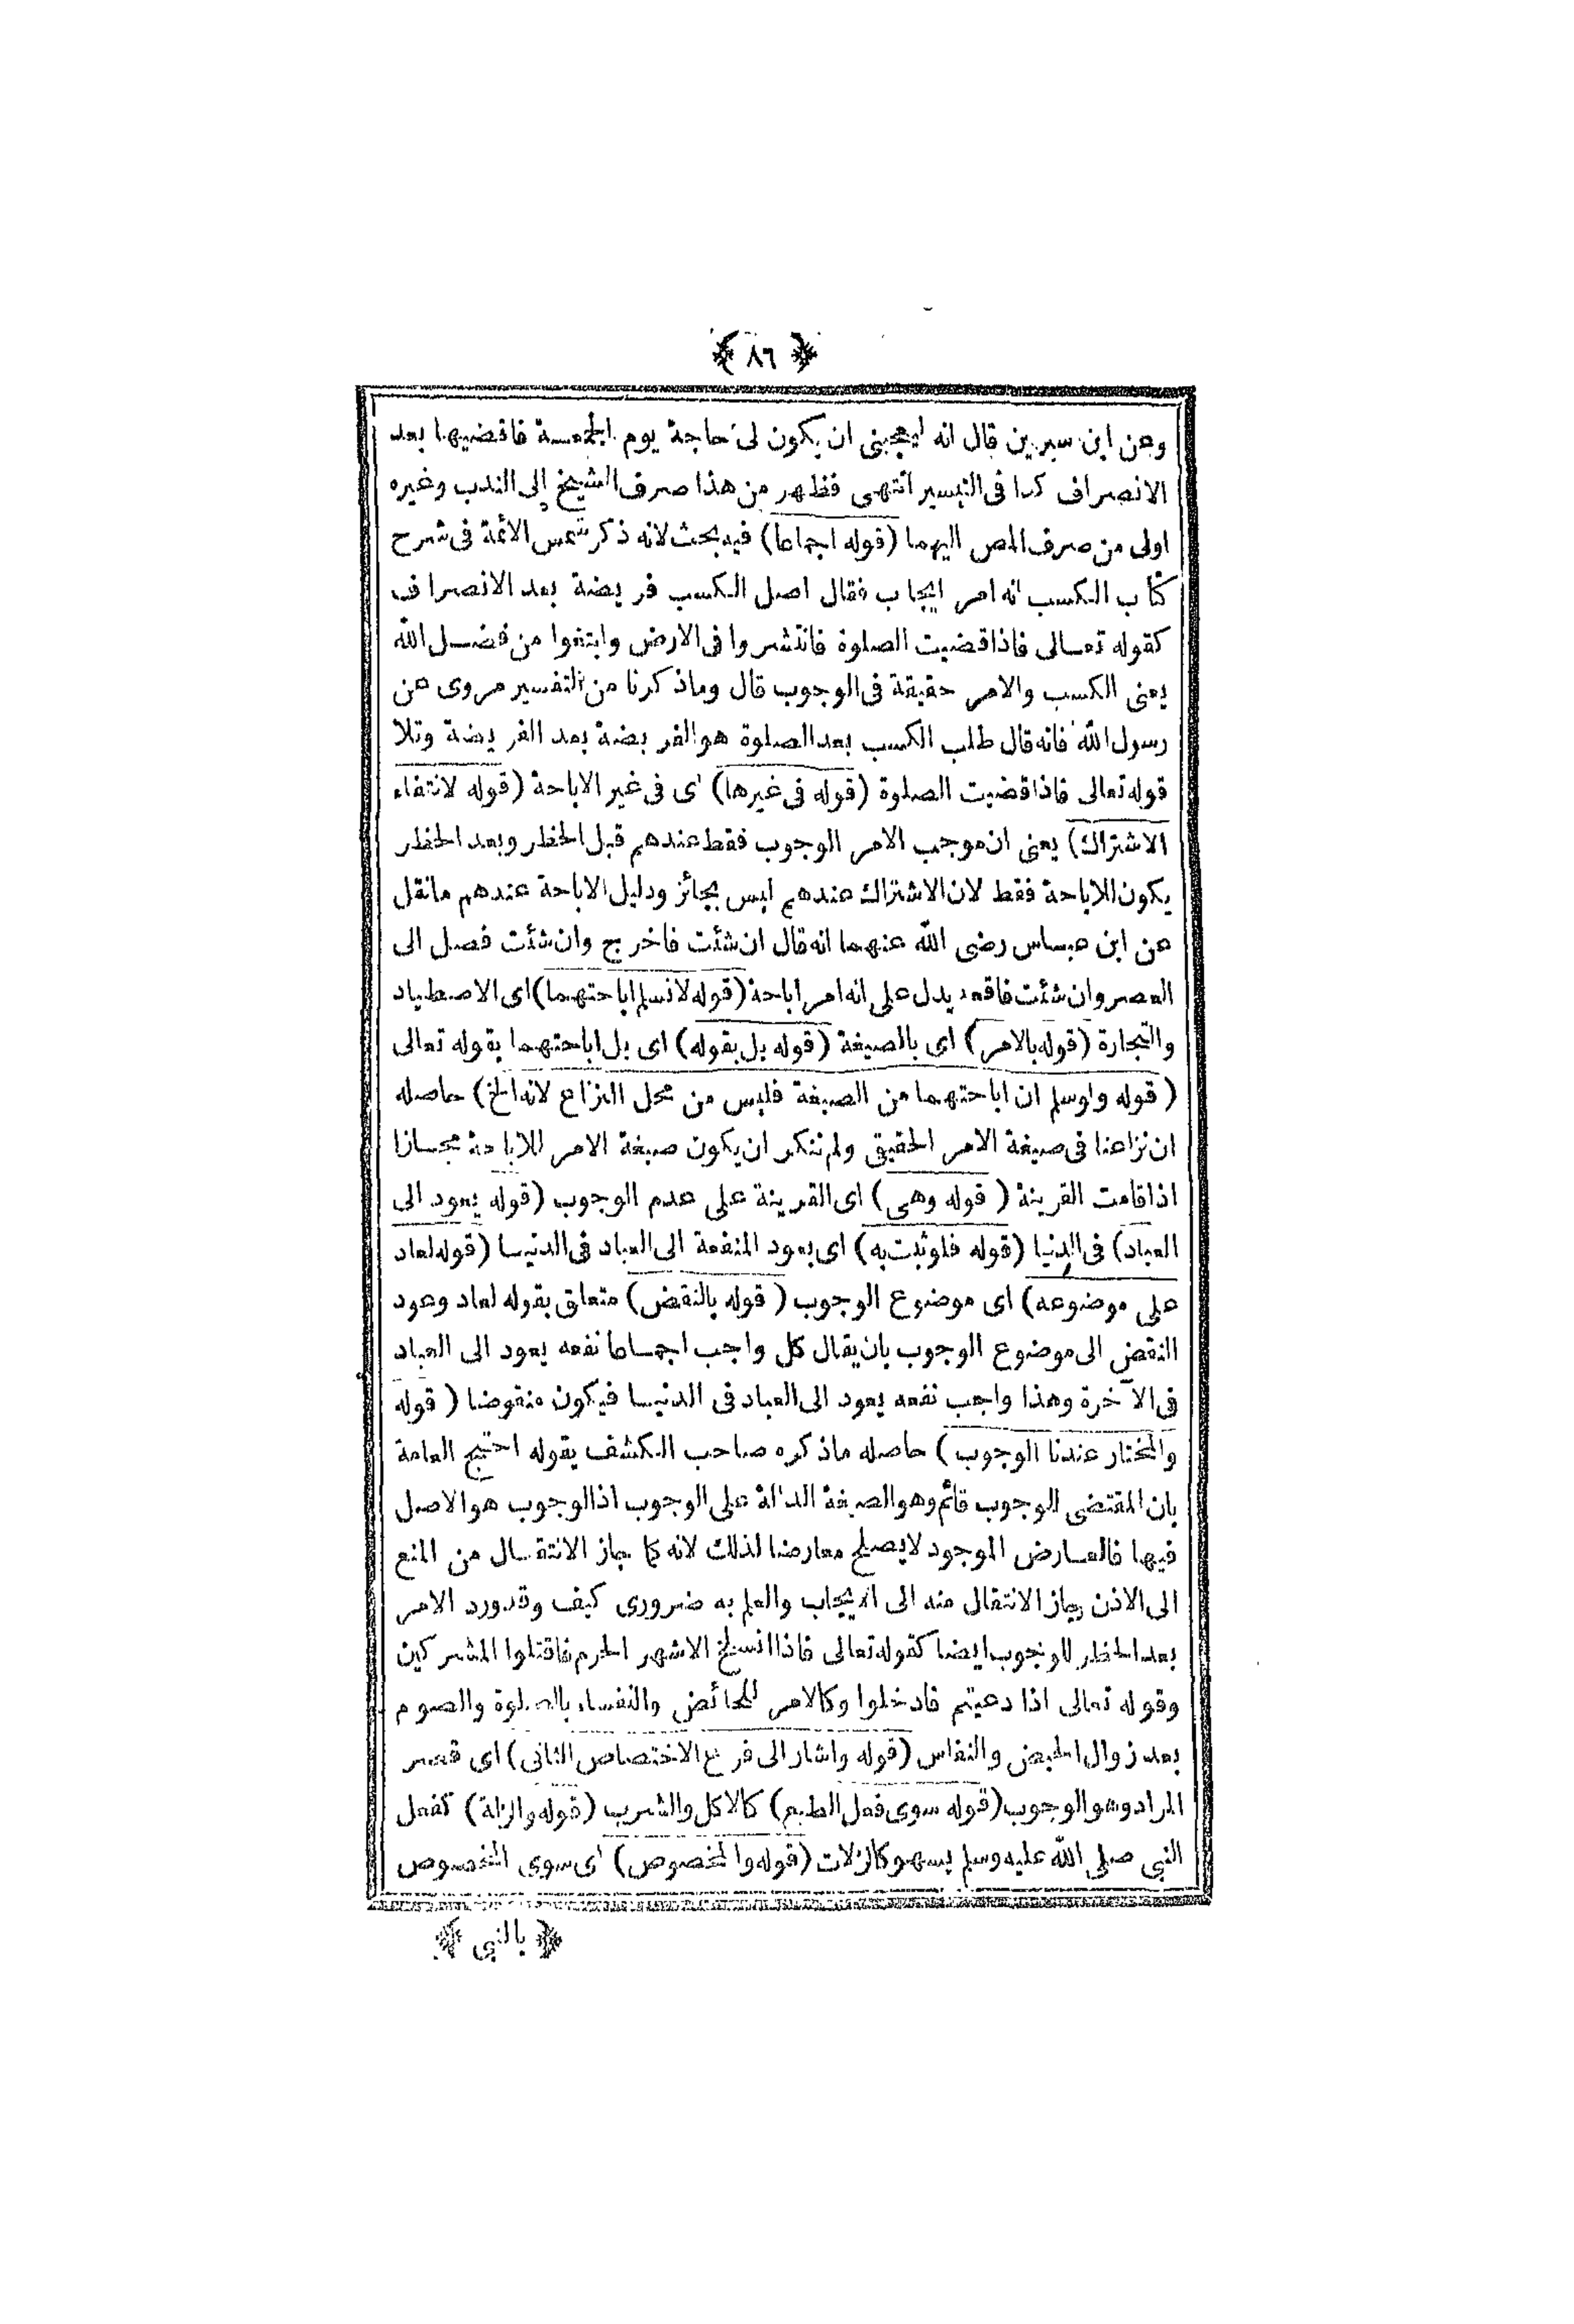 ﴿ ٨٦ ﴾
وعن ابن سيرين قال انه ليعجبنى ان يكون لى حاجة يوم الجمعة فاقضيها بعد
الانصراف كذا فى التيسير انتهى فظهر من هذا صرف الشيخ الى الندب وغيره
اولى من صرف المص اليهما (قوله اجماعا) فيه بحث لانه ذكر شمس الأئمة فى شرح
كتاب الكسب انه امر ايجاب فقال اصل الكسب فريضة بعد الانصراف
كقوله تعالى فاذا قضيت الصلوة فانتشروا فى الارض وابتغوا من فضل الله
يعنى الكسب والامر حقيقة فى الوجوب قال وماذكرنا من التفسير مروى عن
رسول الله فانه قال طلب الكسب بعد الصلوة هو الفريضة بعد الفريضة وتلا
قوله تعالى فاذا قضيت الصلوة (قوله فى غيرها) اى فى غير الاباحة (قوله لانتفاء
الاشتراك) يعنى ان موجب الامر الوجوب فقط عندهم قبل الحظر وبعد الحظر
يكون للاباحة فقط لان الاشتراك عندهم ليس بجائز ودليل الاباحة عندهم مانقل
عن ابن عباس رضى الله عنهما انه قال ان شئت فاخرج وان شئت فصل الى
العصر وان شئت فاقعد يدل على انه امر اباحة (قوله لانسلم اباحتهما) اى الاصطياد
والتجارة (قوله بالامر) اى بالصيغة (قوله بل بقوله) اى بل اباحتهما بقوله تعالى
(قوله ولوسلم ان اباحتهما من الصيغة فليس من محل النزاع لانه الخ) حاصله
ان نزاعنا فى صيغة الامر الحقيقى ولم ننكر ان يكون صيغة الامر للاباحة مجازا
اذا قامت القرينة (قوله وهى) اى القرينة على عدم الوجوب (قوله يعود الى
العباد) فى الدنيا (قوله فلو ثبت به) اى يعود المنفعة الى العباد فى الدنيا (قوله لعاد
على موضوعه) اى موضوع الوجوب (قوله بالنقض) متعلق بقوله لعاد وعود
النقض الى موضوع الوجوب بان يقال كل واجب اجماعا نفعه يعود الى العباد
فى الآخرة وهذا واجب نفعه يعود الى العباد فى الدنيا فيكون منقوضا (قوله
والمختار عندنا الوجوب) حاصله ماذكره صاحب الكشف بقوله احتج العامة
بان المقتضى للوجوب قائم وهو الصيغة الدالة على الوجوب اذ الوجوب هو الاصل
فيها فالعارض الموجود لايصلح معارضا لذلك لانه كما جاز الانتقال من المنع
الى الاذن جاز الانتقال منه الى الايجاب والعلم به ضرورى كيف وقدورد الامر
بعد الحظر للوجوب ايضا كقوله تعالى فاذا انسلخ الاشهر الحرم فاقتلوا المشركين
وقوله تعالى اذا دعيتم فادخلوا وكالامر للحائض والنفساء بالصلوة والصوم
بعد زوال الحيض والنفاس (قوله واشار الى فرع الاختصاص الثانى) اى قصر
المراد وهو الوجوب (قوله سوى فعل الطبع) كالاكل والشرب (قوله والزلة) كفعل
النبى صلى الله عليه وسلم بسهو كالزلات (قوله والمخصوص) اى سوى المخصوص
﴿ بالنبى ﴾